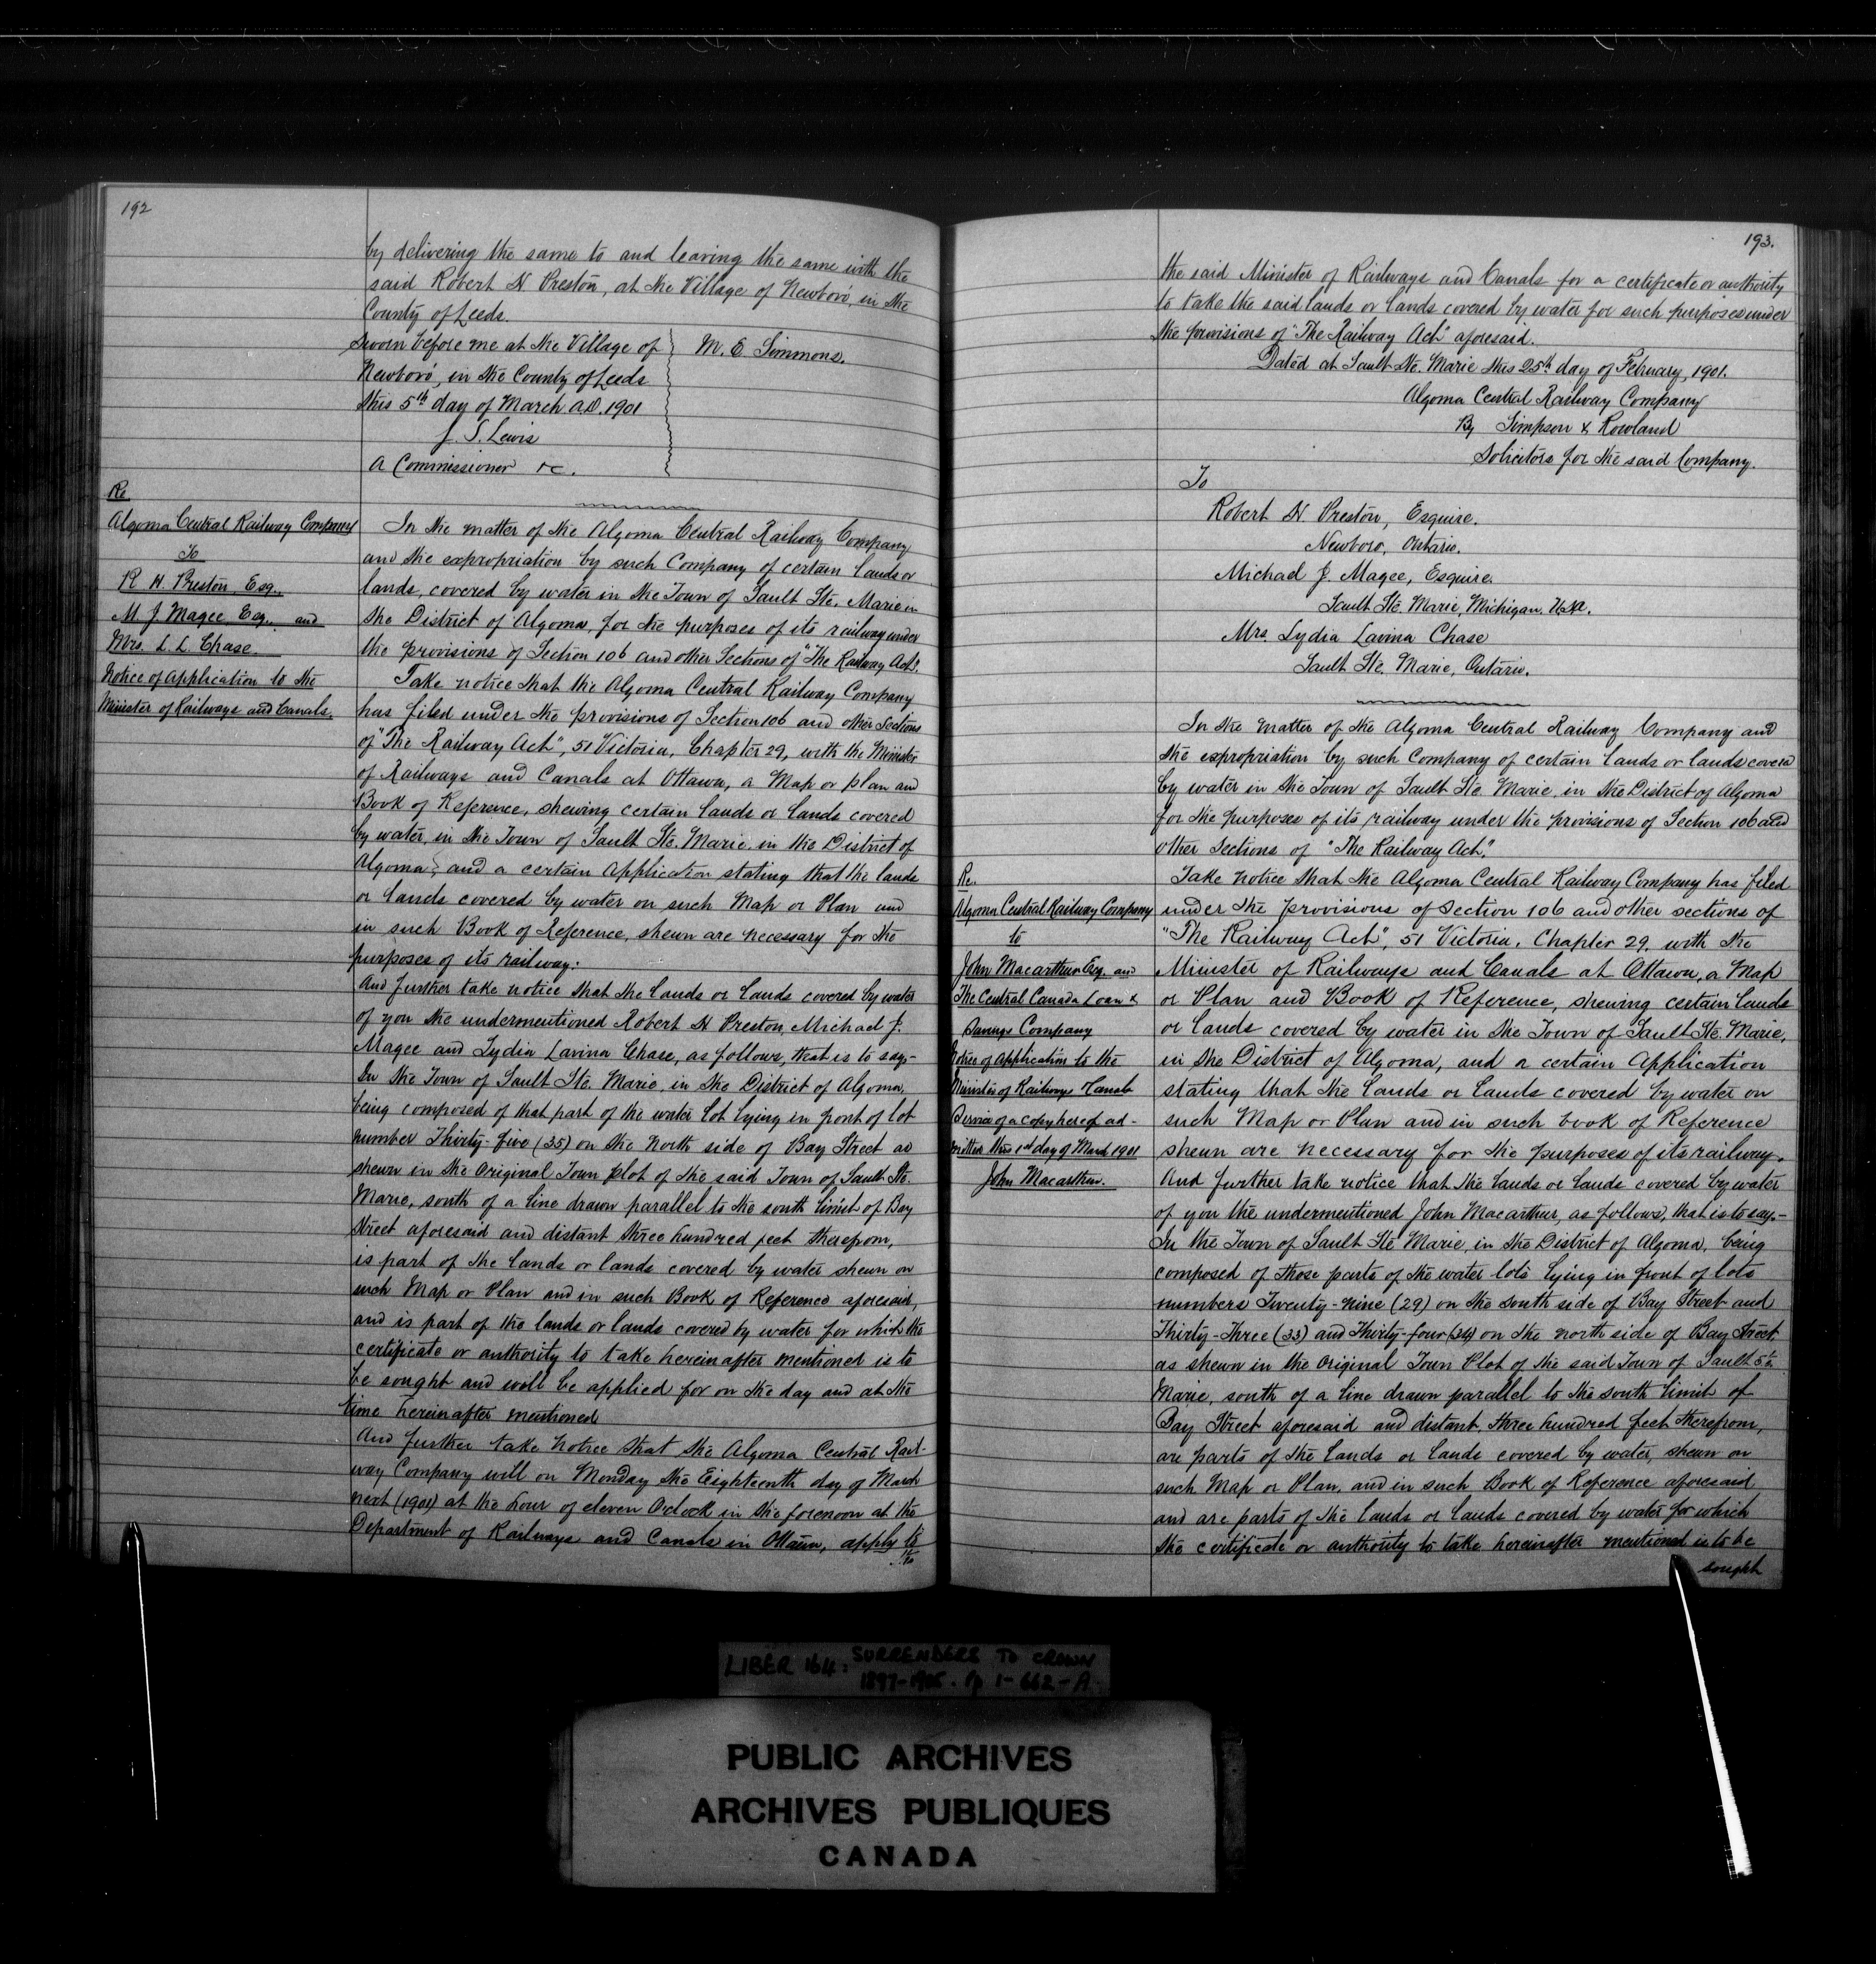 192
by delivering the same to and leaving the same with the
said Robert H Preston, at the Village of Newboro', in the
County of Leeds.
Sworn before me at the Village of
Newboro', in the County of Leeds
this 5th day of March A.D. 1901
J. S. Lewis
A Commissioner &c.
M. E. Simmons.
Re
Algoma Central Railway Company
To
R H. Preston Esq.,
M J Magee Esq., and
Mrs. L L Chase.
Notice of Application to the
Minister of Railways and Canals.
In the matter of the Algoma Central Railway Company
and the expropriation by such Company of certain lands or
lands, covered by water in the Town of Sault Ste. Marie in
the District of Algoma, for the purposes of its railway under
the provisions of Section 106 and other Sections of "The Railway Act".
Take notice that the Algoma Central Railway Company
has filed under the provisions of Section 106 and other Sections
of "The Railway Act", 51 Victoria, Chapter 29, with the Minister
of Railways and Canals at Ottawa, a Map or plan and
Book of Reference, shewing certain lands or lands covered
by water, in the Town of Sault Ste. Marie, in the District of
Algoma, and a certain Application stating that the lands
or lands covered by water on such Map or Plan and
in such Book of Reference, shewn are necessary for the
purposes of its railway:
And further take notice that the lands or lands covered by water
of you the undermentioned Robert H Preston, Michael J.
Magee and Lydia Lavina Chase, as follows, that is to say,-
In the Town of Sault Ste. Marie, in the District of Algoma,
being composed of that part of the water lot lying in front of lot
number Thirty-five (35) on the North side of Bay Street as
shewn in the Original Town plot of the said Town of Sault Ste.
Marie, south of a line drawn parallel to the south limit of Bay
Street aforesaid and distant three hundred feet therefrom,
is part of the lands or lands covered by water shewn on
such Map or Plan and in such Book of Reference aforesaid,
and is part of the lands or lands covered by water for which the
certificate or authority to take hereinafter mentioned is to
be sought and will be applied for on the day and at the
time hereinafter mentioned
And further take notice that the Algoma Central Rail-
way Company will on Monday the Eighteenth day of March
next (1901) at the hour of eleven O'clock in the forenoon at the
Department of Railways and Canals in Ottawa, apply to
the
193.
the said Minister of Railways and Canals for a certificate or authority
to take the said lands or lands covered by water for such purposes under
the provisions of "The Railway Act" aforesaid.
Dated at Sault Ste. Marie this 25th day of February, 1901.
Algoma Central Railway Company
By Simpson & Rowland
Solicitors for the said Company.
To
Robert H Preston, Esquire.
Newboro, Ontario.
Michael J. Magee, Esquire.
Sault Ste. Marie, Michigan, U.S.A.
Mrs. Lydia Lavina Chase
Sault Ste. Marie, Ontario.
In the matter of the Algoma Central Railway Company and
the expropriation by such Company of certain lands or lands covered
by water in the Town of Sault Ste. Marie, in the District of Algoma
for the purposes of its railway under the provisions of Section 106 and
other Sections of "The Railway Act".
Re.
Algoma Central Railway Company
to
John Macarthur Esq. and
The Central Canada Loan &
Savings Company
Notice of Application to the
Minister of Railways & Canals
Service of a copy hereof ad-
mitted this 1st day of March 1901
John Macarthur.
Take notice that the Algoma Central Railway Company has filed
under the provisions of Section 106 and other sections of
"The Railway Act", 51 Victoria, Chapter 29, with the
Minister of Railways and Canals at Ottawa, a Map
or Plan and Book of Reference, shewing certain lands
or lands covered by water in the Town of Sault Ste. Marie,
in the District of Algoma, and a certain Application
stating that the lands or lands covered by water on
such Map or Plan and in such book of Reference
shewn are necessary for the purposes of its railway.
And further take notice that the lands or lands covered by water
of you the undermentioned John Macarthur, as follows, that is to say,-
In the Town of Sault Ste Marie, in the District of Algoma, being
composed of those parts of the water lots lying in front of lots
numbers Twenty-nine (29) on the south side of Bay Street and
Thirty-three (33) and Thirty-four (34) on the north side of Bay Street
as shewn in the Original Town Plot of the said Town of Sault Ste.
Marie, south of a line drawn parallel to the south limit of
Bay Street aforesaid and distant three hundred feet therefrom,
are parts of the lands or lands covered by water, shewn on
such Map or Plan, and in such Book of Reference aforesaid
and are parts of the lands or lands covered by water for which
the certificate or authority to take hereinafter mentioned is to be
sought
LIBER 164: SURRENDERS TO CROWN
1897-1905. Pp 1-662-A.
PUBLIC ARCHIVES
ARCHIVES PUBLIQUES
CANADA